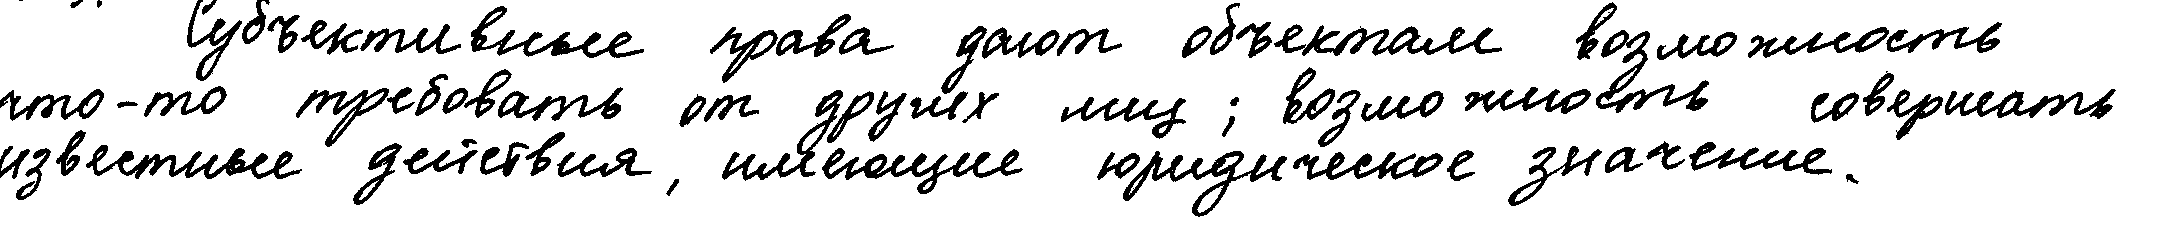 Субъективные права дают объектам возможность
что-то требовать от других лиц; возможность совершать
известные действия, имеющие юридическое значение.